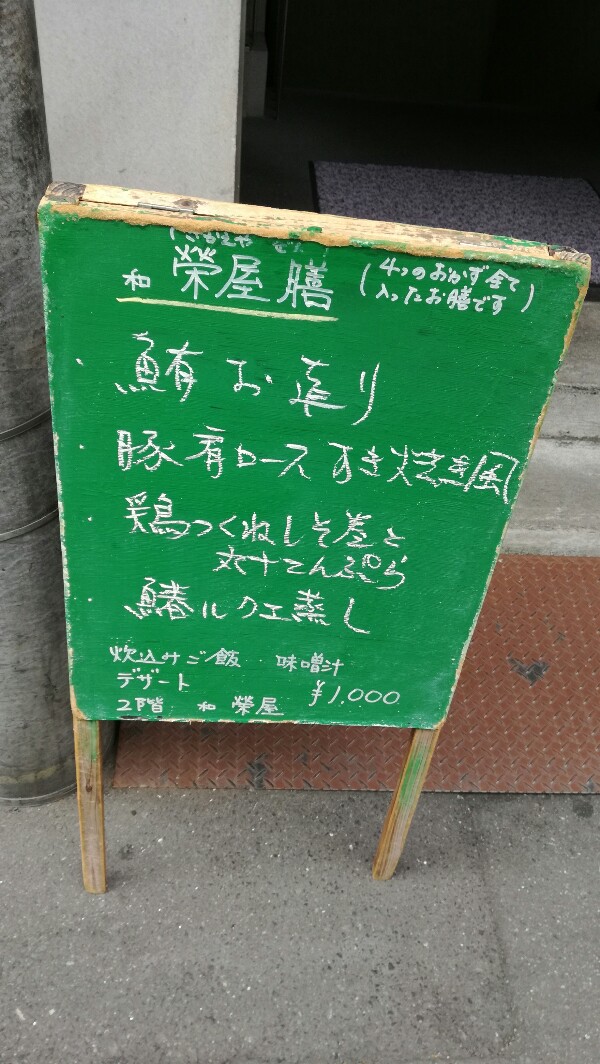 和 榮屋膳
(4つのおかず全て
入ったお膳です)
鮪お造り
豚肩ロースすき焼き風
鶏つくねしそ巻と
丸十てんぷら
鰆ルクエ蒸し
炊込みご飯 味噌汁
デザート ¥1,000
2階 和 榮屋